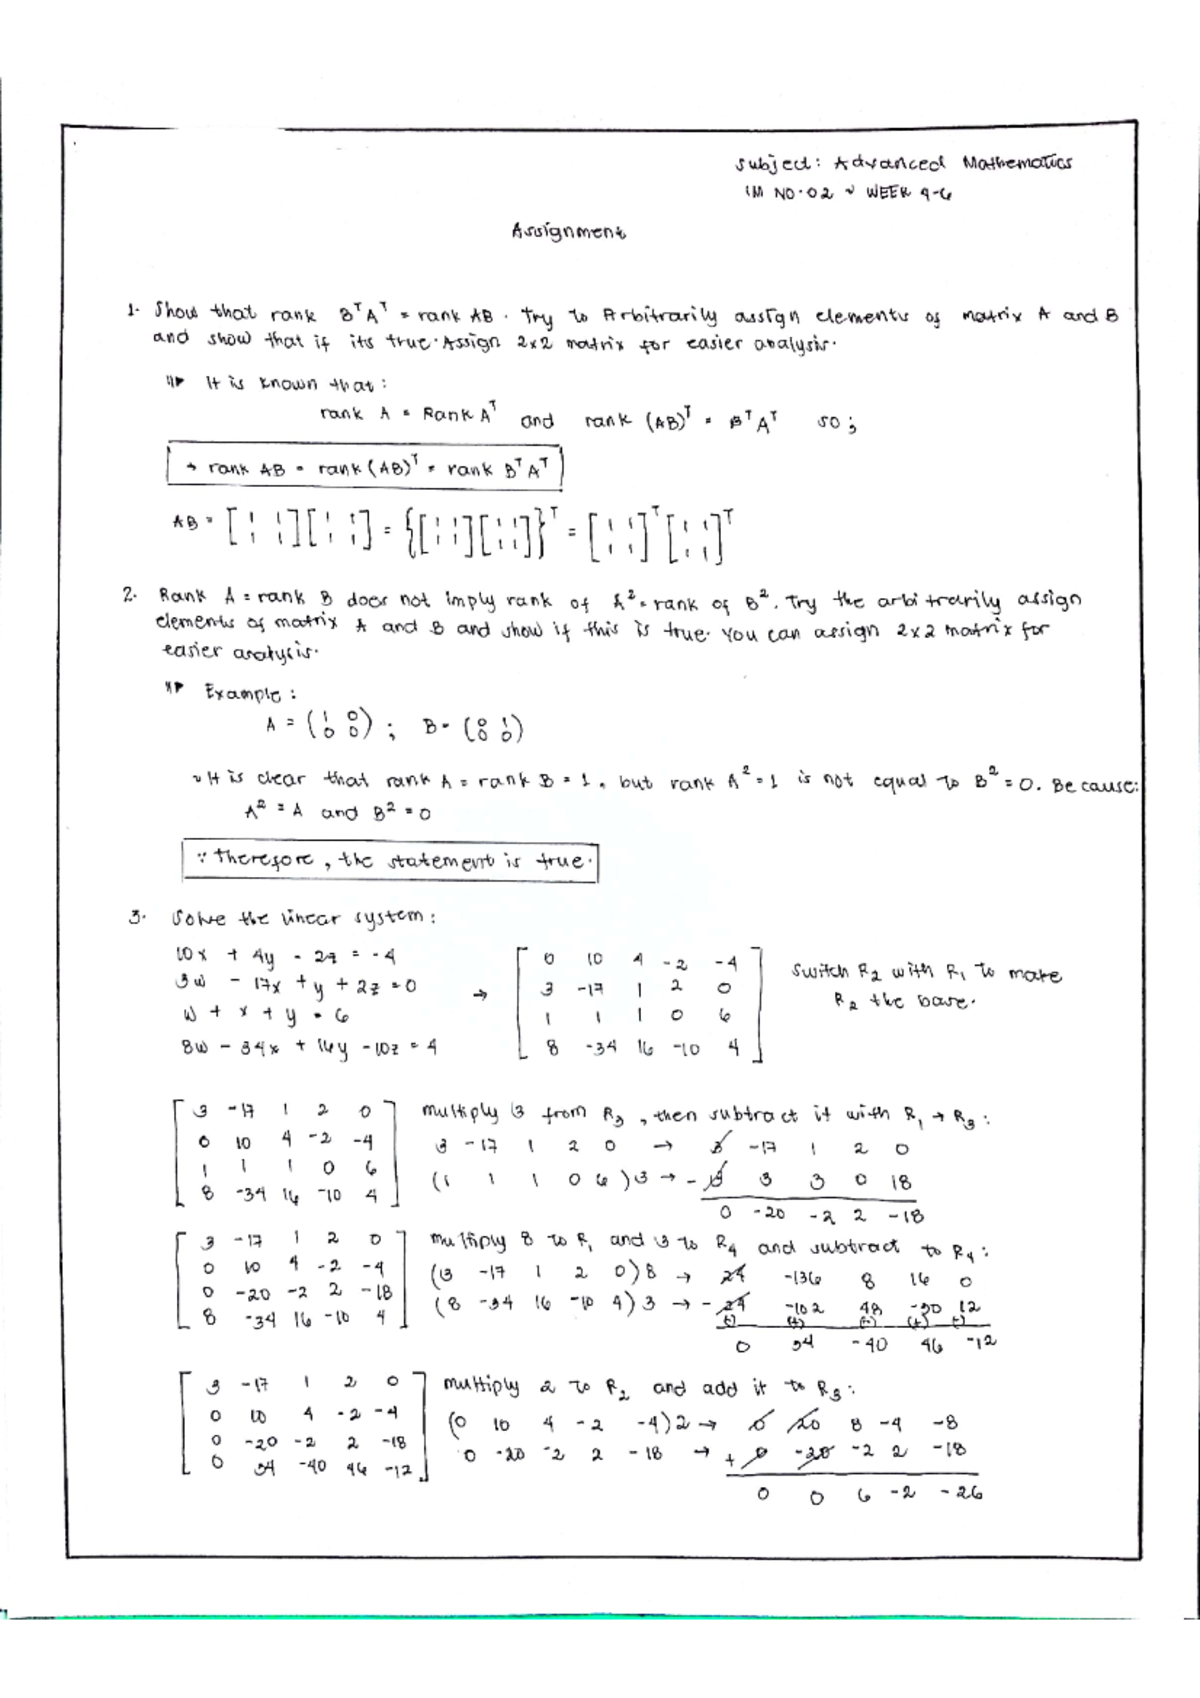 Subject: Advanced Mathematics
IM NO. 02 ~ WEEK 4-6
Assignment
1. Show that rank BᵀAᵀ = rank AB. Try to Arbitrarily assign elements of matrix A and B
and show that if its true. Assign 2x2 matrix for easier analysis.
It is known that:
rank A = Rank Aᵀ and rank (AB)ᵀ = BᵀAᵀ so;
→ rank AB = rank (AB)ᵀ = rank BᵀAᵀ
AB = [1 1 1 1][1 1 1 1] = {[1 1 1 1][1 1 1 1]}ᵀ = [1 1 1 1]ᵀ[1 1 1 1]ᵀ
2. Rank A = rank B does not imply rank of A² = rank of B². Try the arbitrarily assign
elements of matrix A and B and show if this is true. You can assign 2x2 matrix for
easier analysis.
Example:
A = (1 0 0 0); B = (0 1 0 0)
It is clear that rank A = rank B = 1, but rank A² = 1 is not equal to B² = 0. Because:
A² = A and B² = 0
∵ Therefore, the statement is true.
3. Solve the linear system:
10x + 4y - 2z = -4
3w - 17x + y + 2z = 0
w + x + y = 6
8w - 34x + 16y - 10z = 4
→
0 10 4 -2 -4
3 -17 1 2 0
1 1 1 0 6
8 -34 16 -10 4
Switch R2 with R1 to make
R2 the base.
3 -17 1 2 0
0 10 4 -2 -4
1 1 1 0 6
8 -34 16 -10 4
multiply 3 from R3, then subtract it with R1 → R3:
3 -17 1 2 0 → 3 -17 1 2 0
(1 1 1 0 6)3 → - 3 3 3 0 18
0 -20 -2 2 -18
3 -17 1 2 0
0 10 4 -2 -4
0 -20 -2 2 -18
8 -34 16 -10 4
multiply 8 to R1 and 3 to R4 and subtract to R4:
(3 -17 1 2 0)8 → 24 -136 8 16 0
(8 -34 16 -10 4)3 → - 24 -102 48 -30 12
(-) (+) (-) (+) (-)
0 34 -40 46 -12
3 -17 1 2 0
0 10 4 -2 -4
0 -20 -2 2 -18
0 34 -40 46 -12
multiply 2 to R2 and add it to R3:
(0 10 4 -2 -4)2 → 0 20 8 -4 -8
0 -20 -2 2 -18 → + 0 -20 -2 2 -18
0 0 6 -2 -26